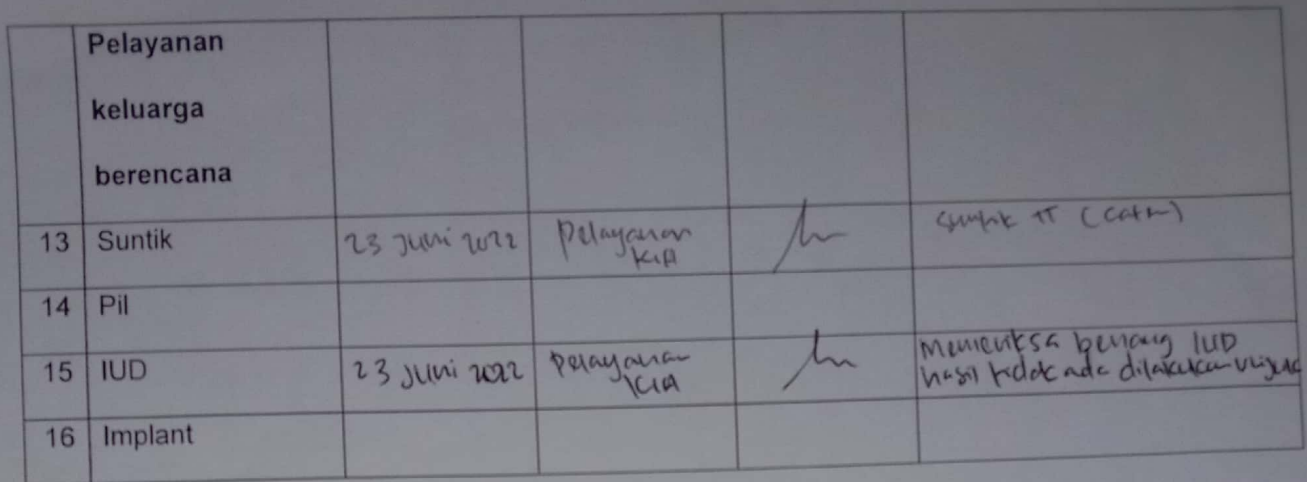 Pelayanan
keluarga
berencana
13 Suntik 23 Juni 2022 Pelayanan KIA suntik TT (catin)
14 Pil
15 IUD 23 Juni 2022 Pelayanan KIA Memeriksa benang IUD
hasil tidak ada dilakukan
16 Implant